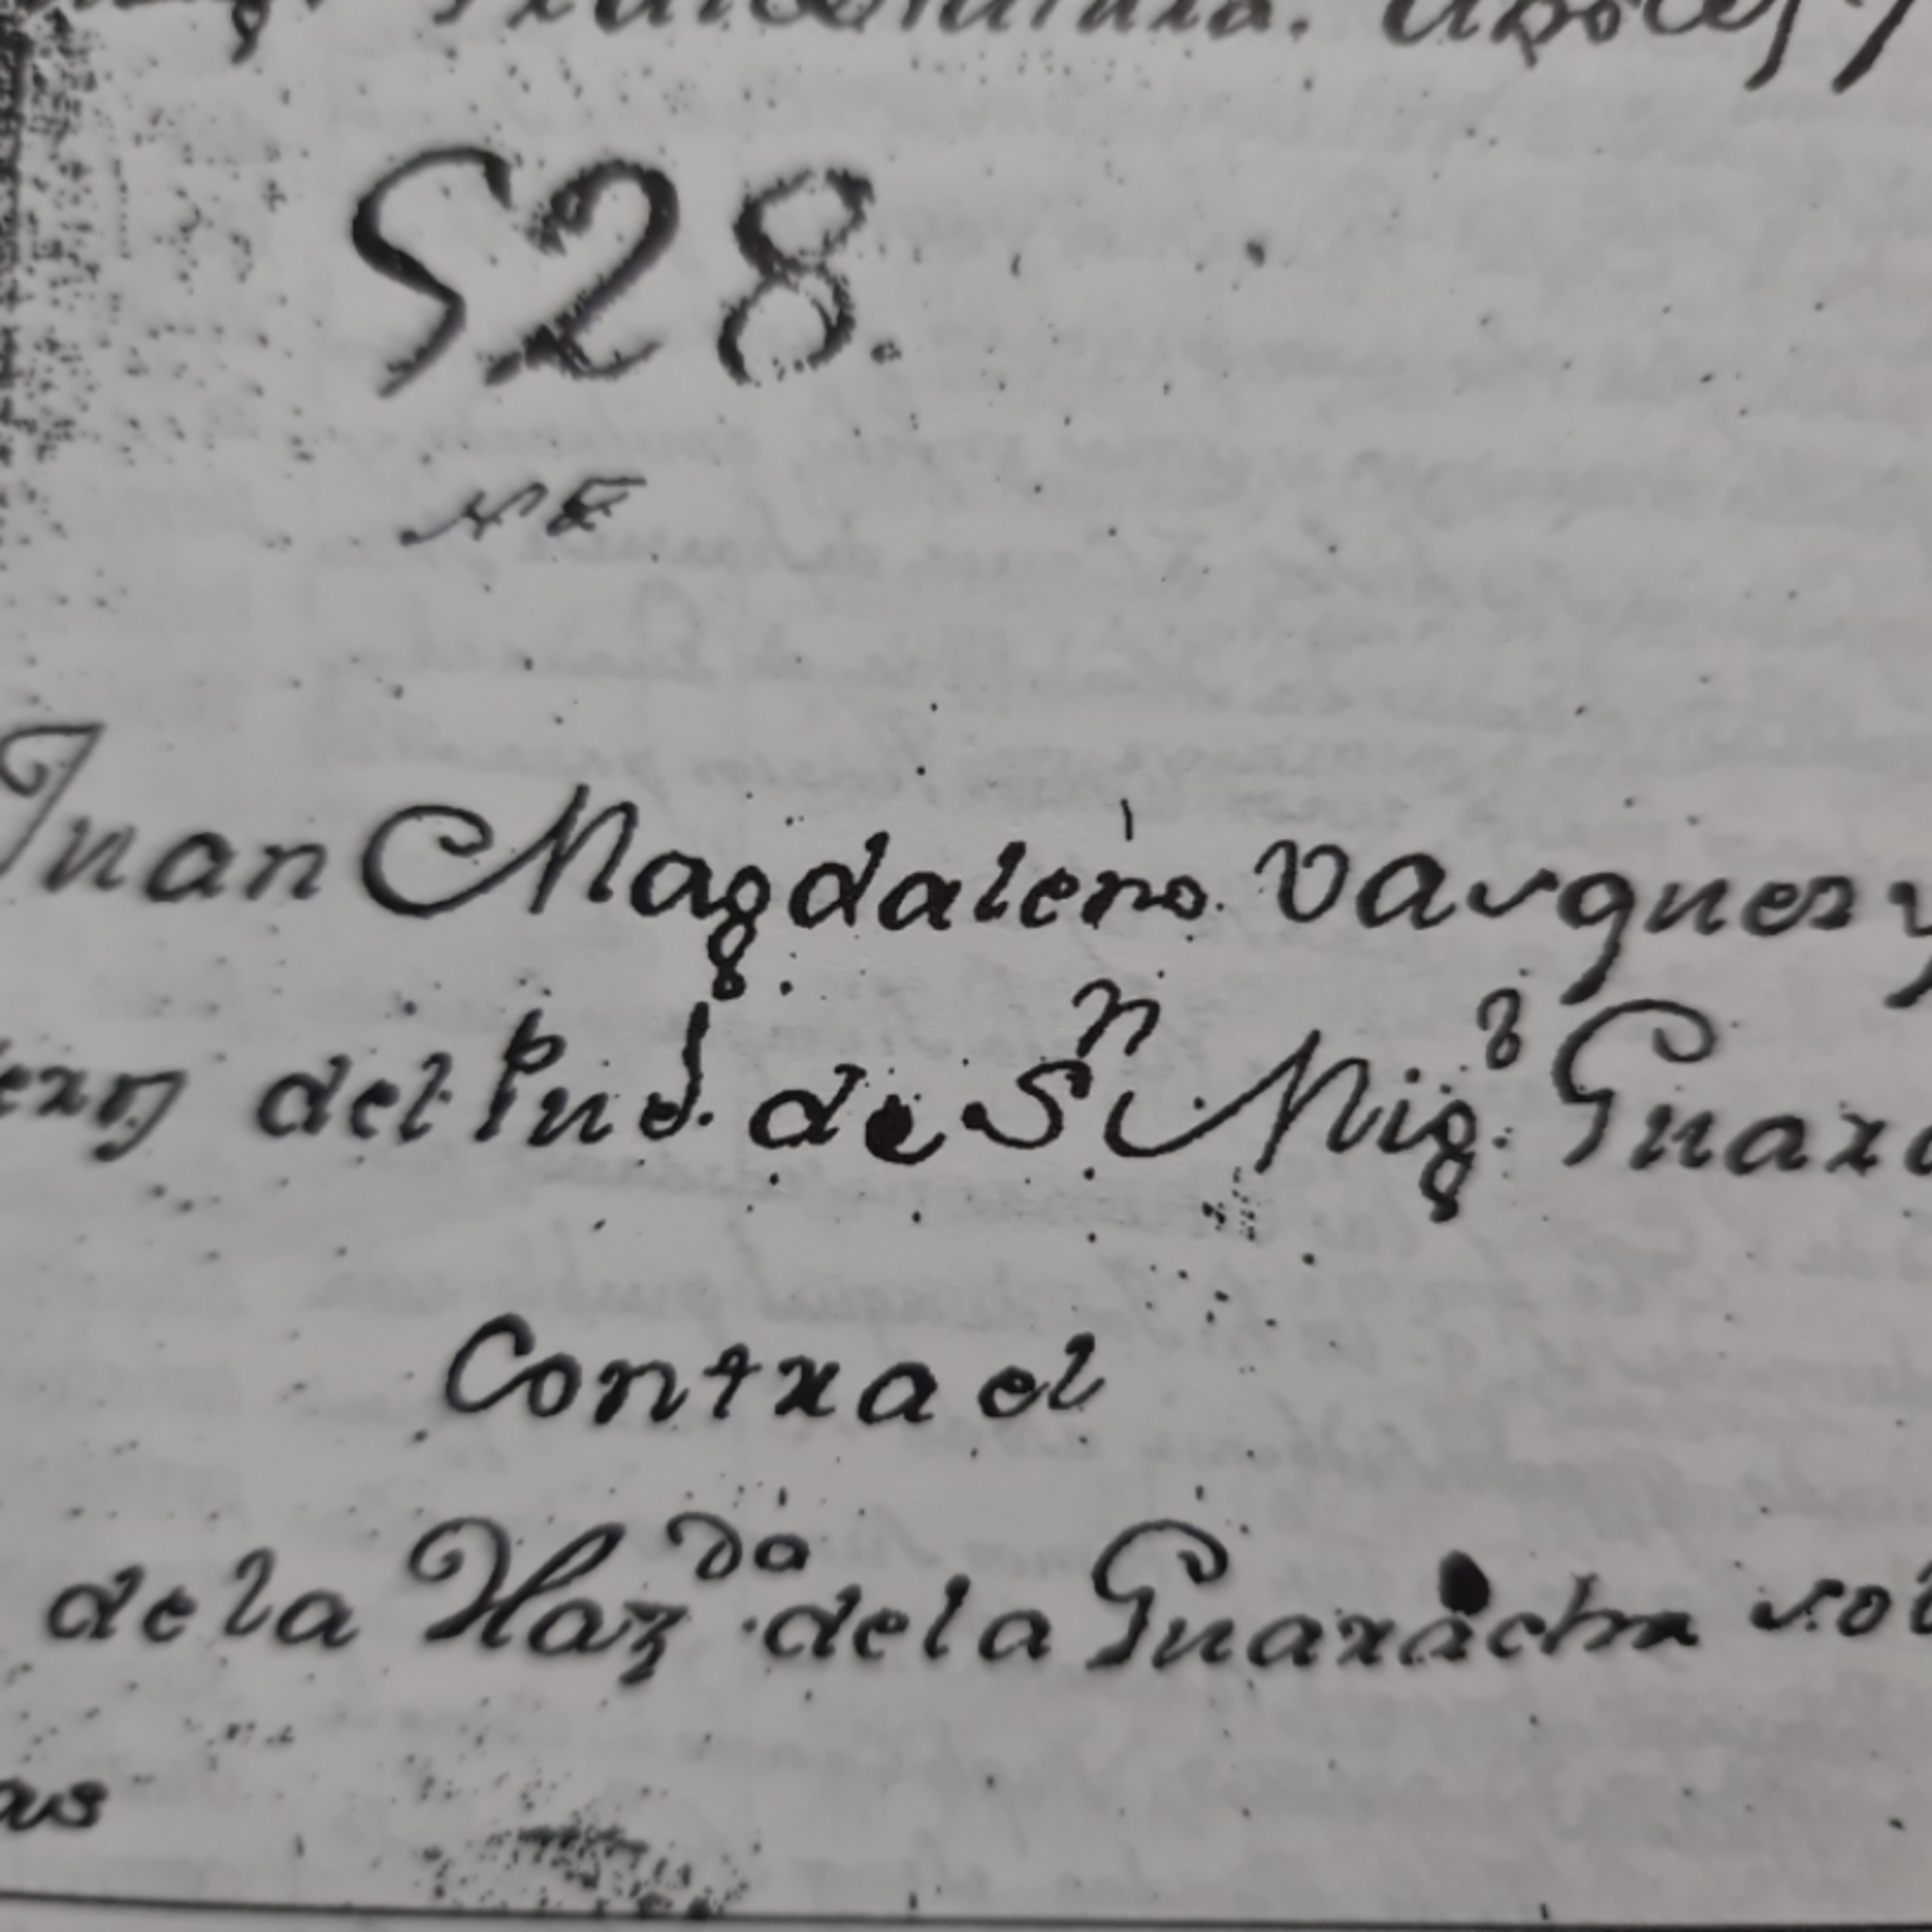 528.
NE
Juan Magdaleno Vasques y
del Pueb.º de Sⁿ Mig.l Guara
Contra el
de la Haz.da de la Guaracha sob
as